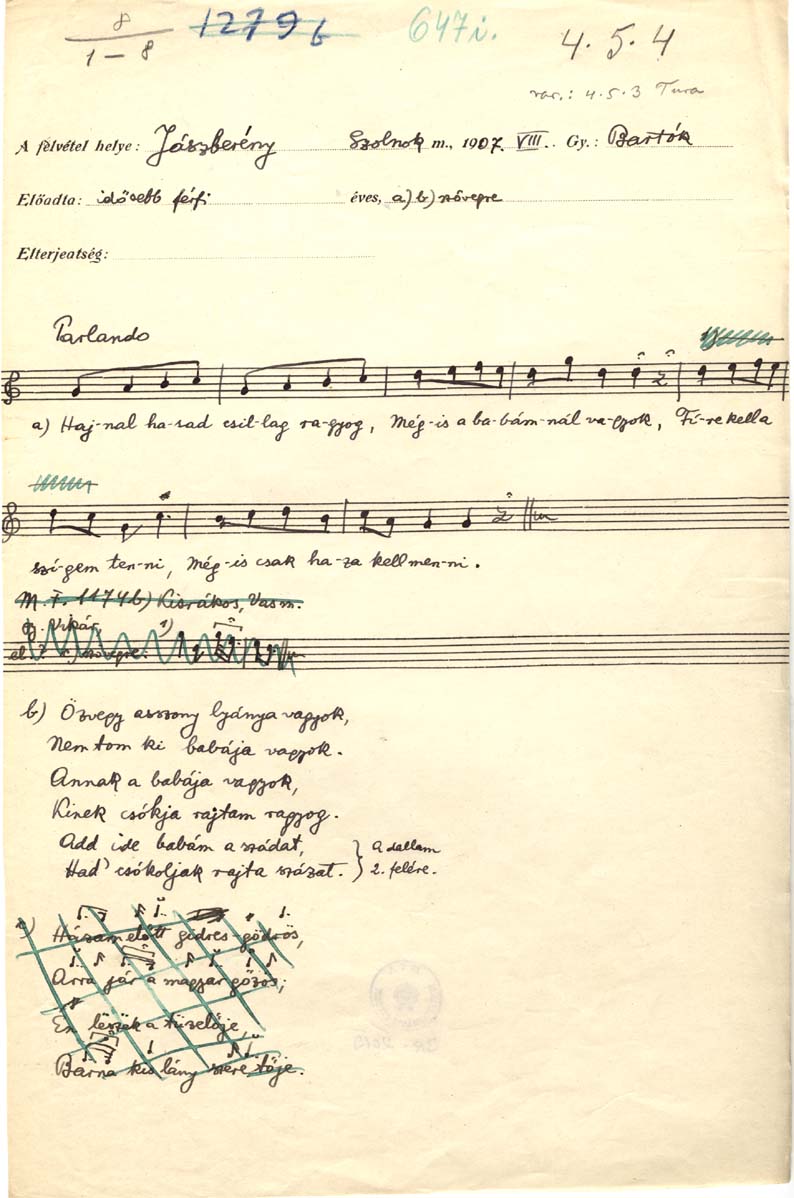 8
1-8
1279b
647i.
4. 5. 4
var.: 4.5.3 Tura
A felvétel helye: Jászberény Szolnok m., 1907. VIII. Gy.: Bartók
Előadta: idősebb férfi éves, a) b) szövegre
Elterjeatség:
Parlando
a) Haj-nal ha-sad csil-lag ra-gyog, Még-is a ba-bám-nál va-gyok, Fí-re kell a
szí-gem ten-ni, Még-is csak ha-za kell men-ni.
M. F. 1174b) Kisrákos, Vas m.
Vikár, 1)
szövegre.
b) Özvegy asszony lyánya vagyok,
Nem tom ki babája vagyok.
Annak a babája vagyok,
Kinek csókja rajtam ragyog.
Add ide babám a szádat, } a dallam
Had' csókoljak rajta százat. } 2. felére.
Házam előtt gidres-gödrös,
Arra jár a magyar gőzös;
Én lëszëk a tüzelője,
Barna kis lány szeretője.